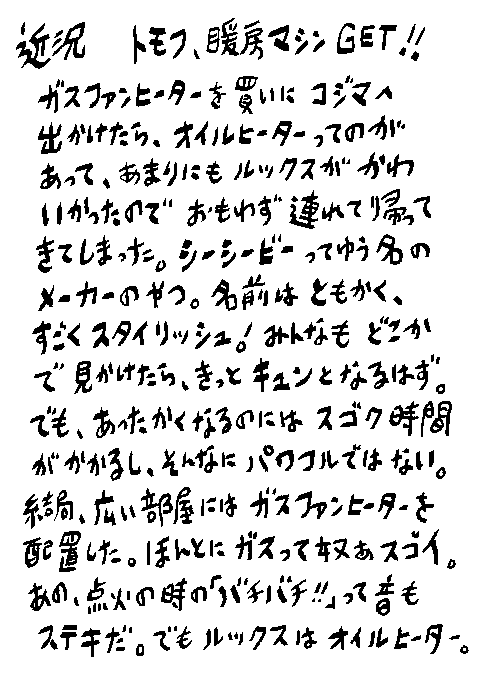 近況　トモフ、暖房マシンGET!!
ガスファンヒーターを買いにコジマへ
出かけたら、オイルヒーターってのが
あって、あまりにもルックスがかわ
いかったのでおもわず連れて帰って
きてしまった。シーシービーってゆう名の
メーカーのやつ。名前はともかく、
すごくスタイリッシュ!みんなもどこか
で見かけたら、きっとキュンとなるはず。
でも、あったかくなるのにはスゴク時間
がかかるし、そんなにパワフルではない。
結局、広い部屋にはガスファンヒーターを
配置した。ほんとにガスって奴あスゴイ。
あの、点火の時の「バチバチ!!」って音も
ステキだ。でもルックスはオイルヒーター。